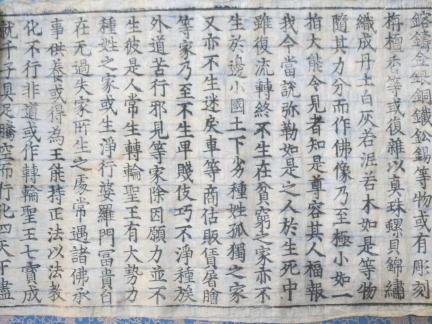 鎔鑄金銀銅鐵鉛錫等物或有彫刻
栴檀香等或復雜以真珠螺貝錦繡
織成丹土白灰若泥若木如是等物
隨其力分而作佛像乃至極小如一
指大能令見者知是尊容其人福報
我今當說彌勒如是之人於生死中
雖復流轉終不生在貧窮之家亦不
生於邊小國土下劣種姓孤獨之家
又亦不生迷戾車等商估販賃屠膾
等家乃至不生卑賤伎巧不淨種族
外道苦行邪見等家除因願力並不
生彼是人常生轉輪聖王有大勢力
種姓之家或生淨行婆羅門富貴自
在無過失家所生之處常遇諸佛承
事供養或得為王能持正法以法教
化不行非道或作轉輪聖王七寶成
就千子具足騰空而行化四天下盡